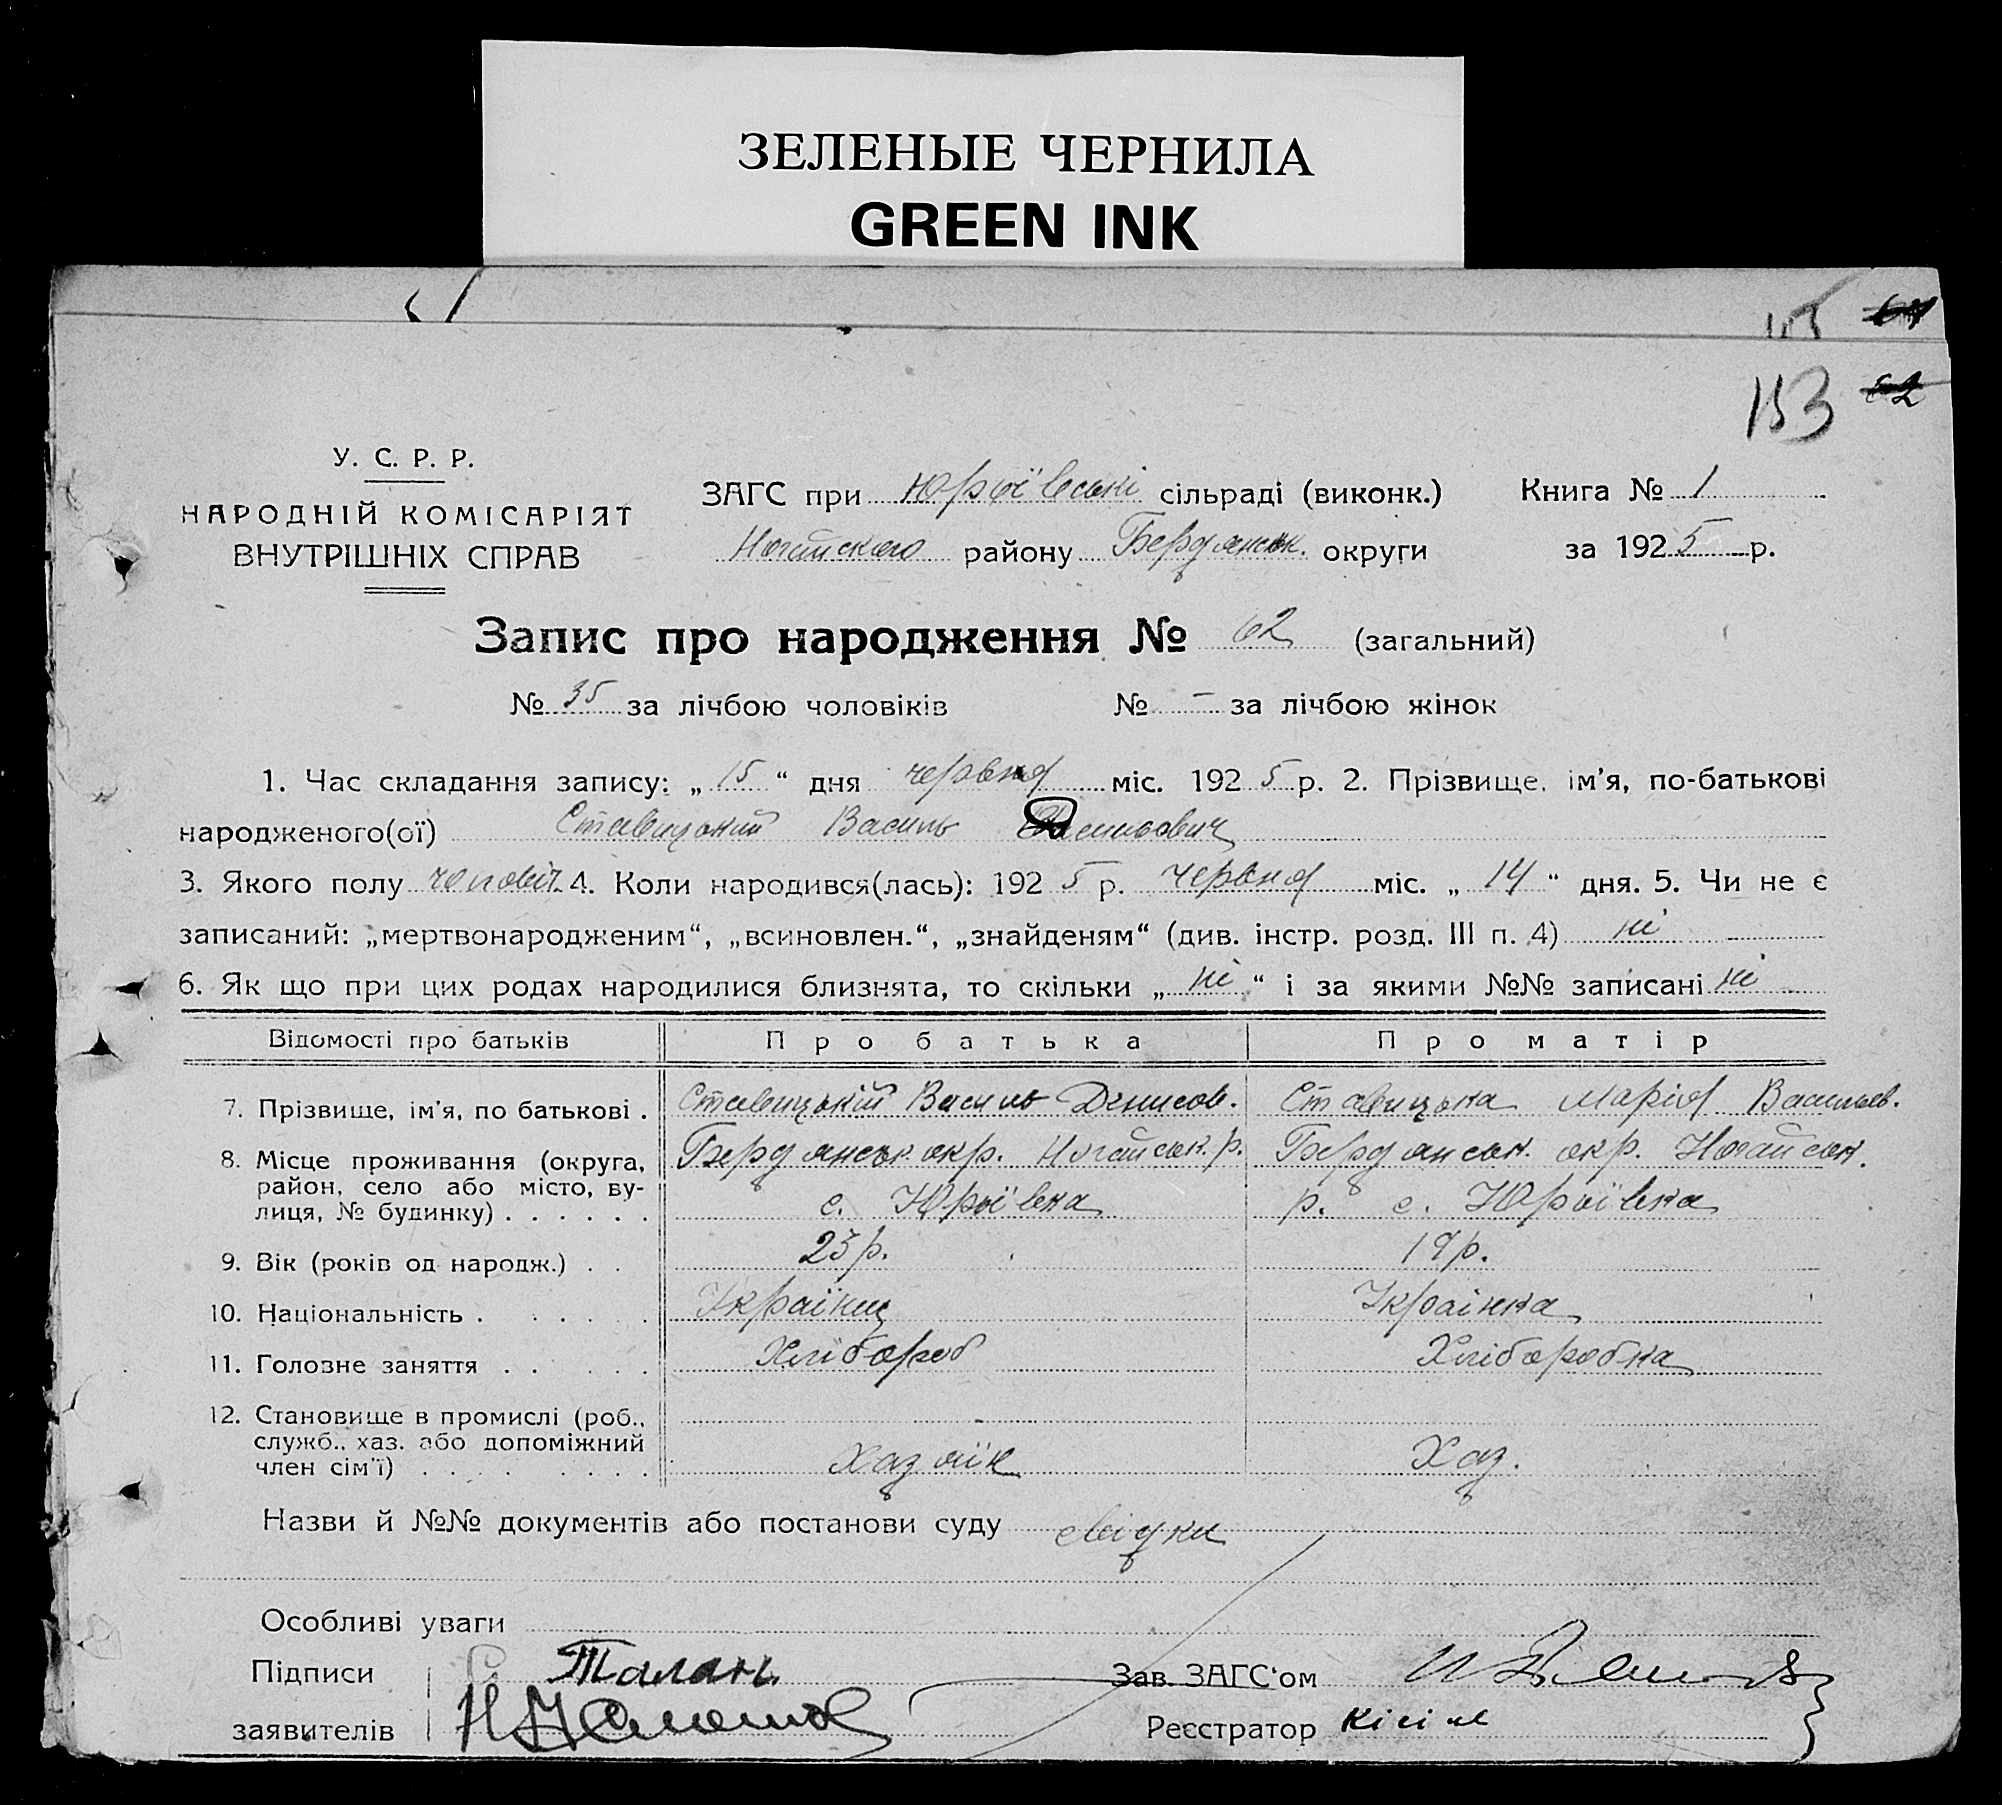 ЗЕЛЕНЫЕ ЧЕРНИЛА
GREEN INK
153
У. С. Р. Р.
НАРОДНІЙ КОМІСАРІЯТ
ВНУТРІШНІХ СПРАВ
ЗАГС при Юр'ївські сільраді (виконк.) Книга № 1
Ногайского району Бердянськ. округи за 1925 р.
Запис про народження № 62 (загальний)
№ 35 за лічбою чоловіків № — за лічбою жінок
1. Час складання запису: „15“ дня червня міс. 1925 р. 2. Прізвище, ім'я, по-батькові
народженого(ої) Ставицький Василь Васильович
3. Якого полу чоловіч. 4. Коли народився(лась): 1925 р. червня міс. „14“ дня. 5. Чи не є
записаний: „мертвонародженим“, „всиновлен.“, „знайденям“ (див. інстр. розд. III п. 4) ні
6. Як що при цих родах народилися близнята, то скільки „ні“ і за якими №№ записані ні
Відомості про батьків Про батька Про матір
7. Прізвище, ім'я, по батькові . Ставицькій Василь Денисов. Ставицька Марія Васильев.
8. Місце проживання (округа, район, село або місто, вулиця, № будинку) . . . . . . Бердянськ окр. Ногайськ. р. Бердянськ. окр. Ногайськ.
с. Юр'ївка р. с. Юр'ївка
9. Вік (років од народж.) . . 23 р. 19 р.
10. Національність . . . . . Українц Украінка
11. Головне заняття . . . . . Хлібороб Хлібородка
12. Становище в промислі (роб., служб., хаз. або допоміжний член сім'ї) . . . . . . . . Хазяїн Хаз.
Назви й №№ документів або постанови суду свідки
Особливі уваги
Підписи Талан. Зав. ЗАГС'ом
заявителів Реєстратор